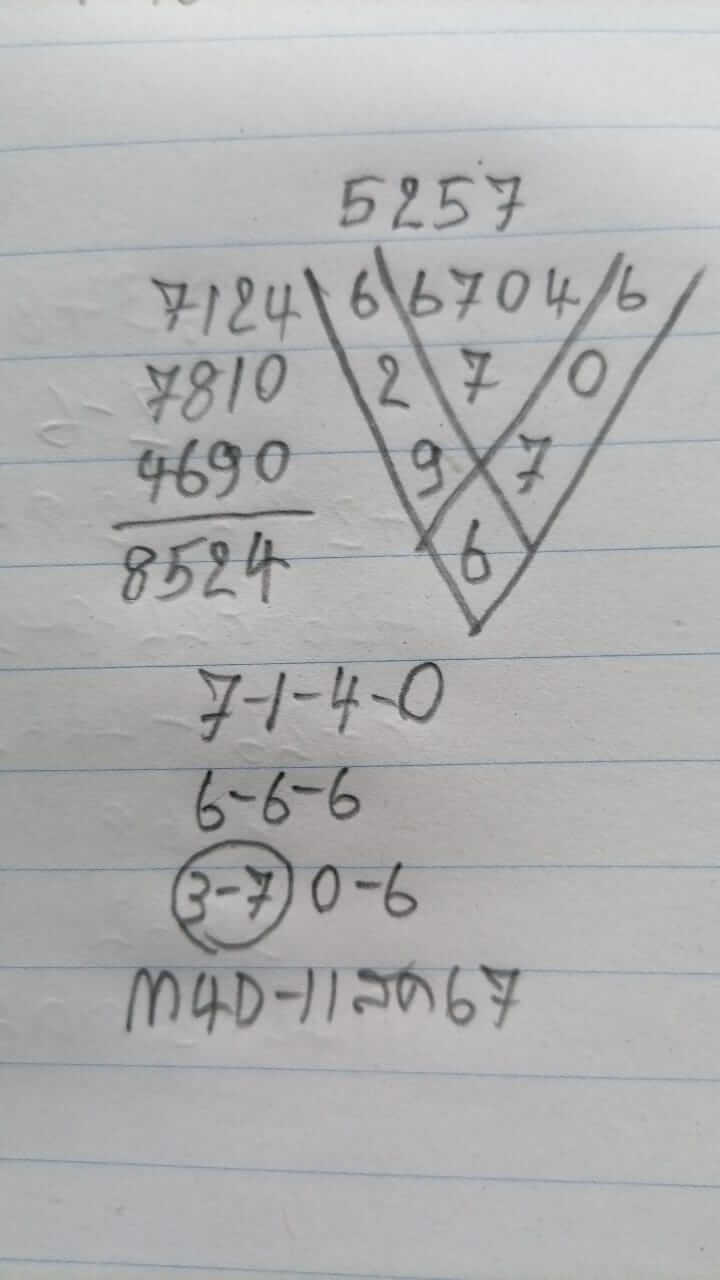 5257
7124 6 6704 6
7810 2 7 0
4690 9 7
8524 6
7-1-4-0
6-6-6
3-7 0-6
M4D-11
67